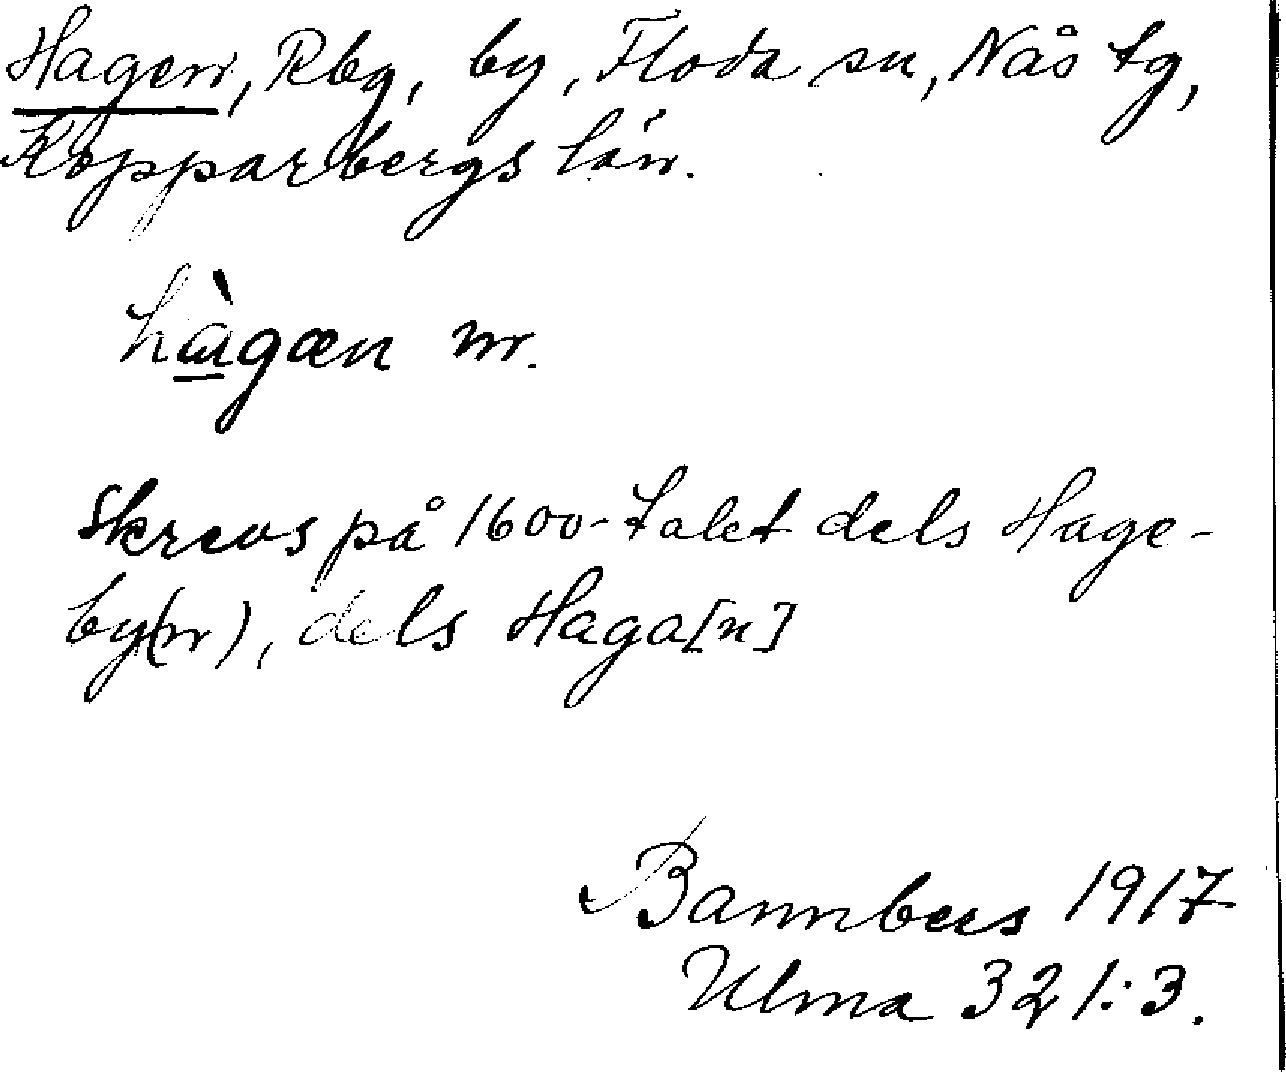 Hagen, Rbg, by, Floda sn, Nås tg,
Kopparbergs län.
hàgæn m.
Skrevs på 1600-talet dels Hage-
by(n), dels Haga[n]
Bannbers 1917
Ulma 321:3.